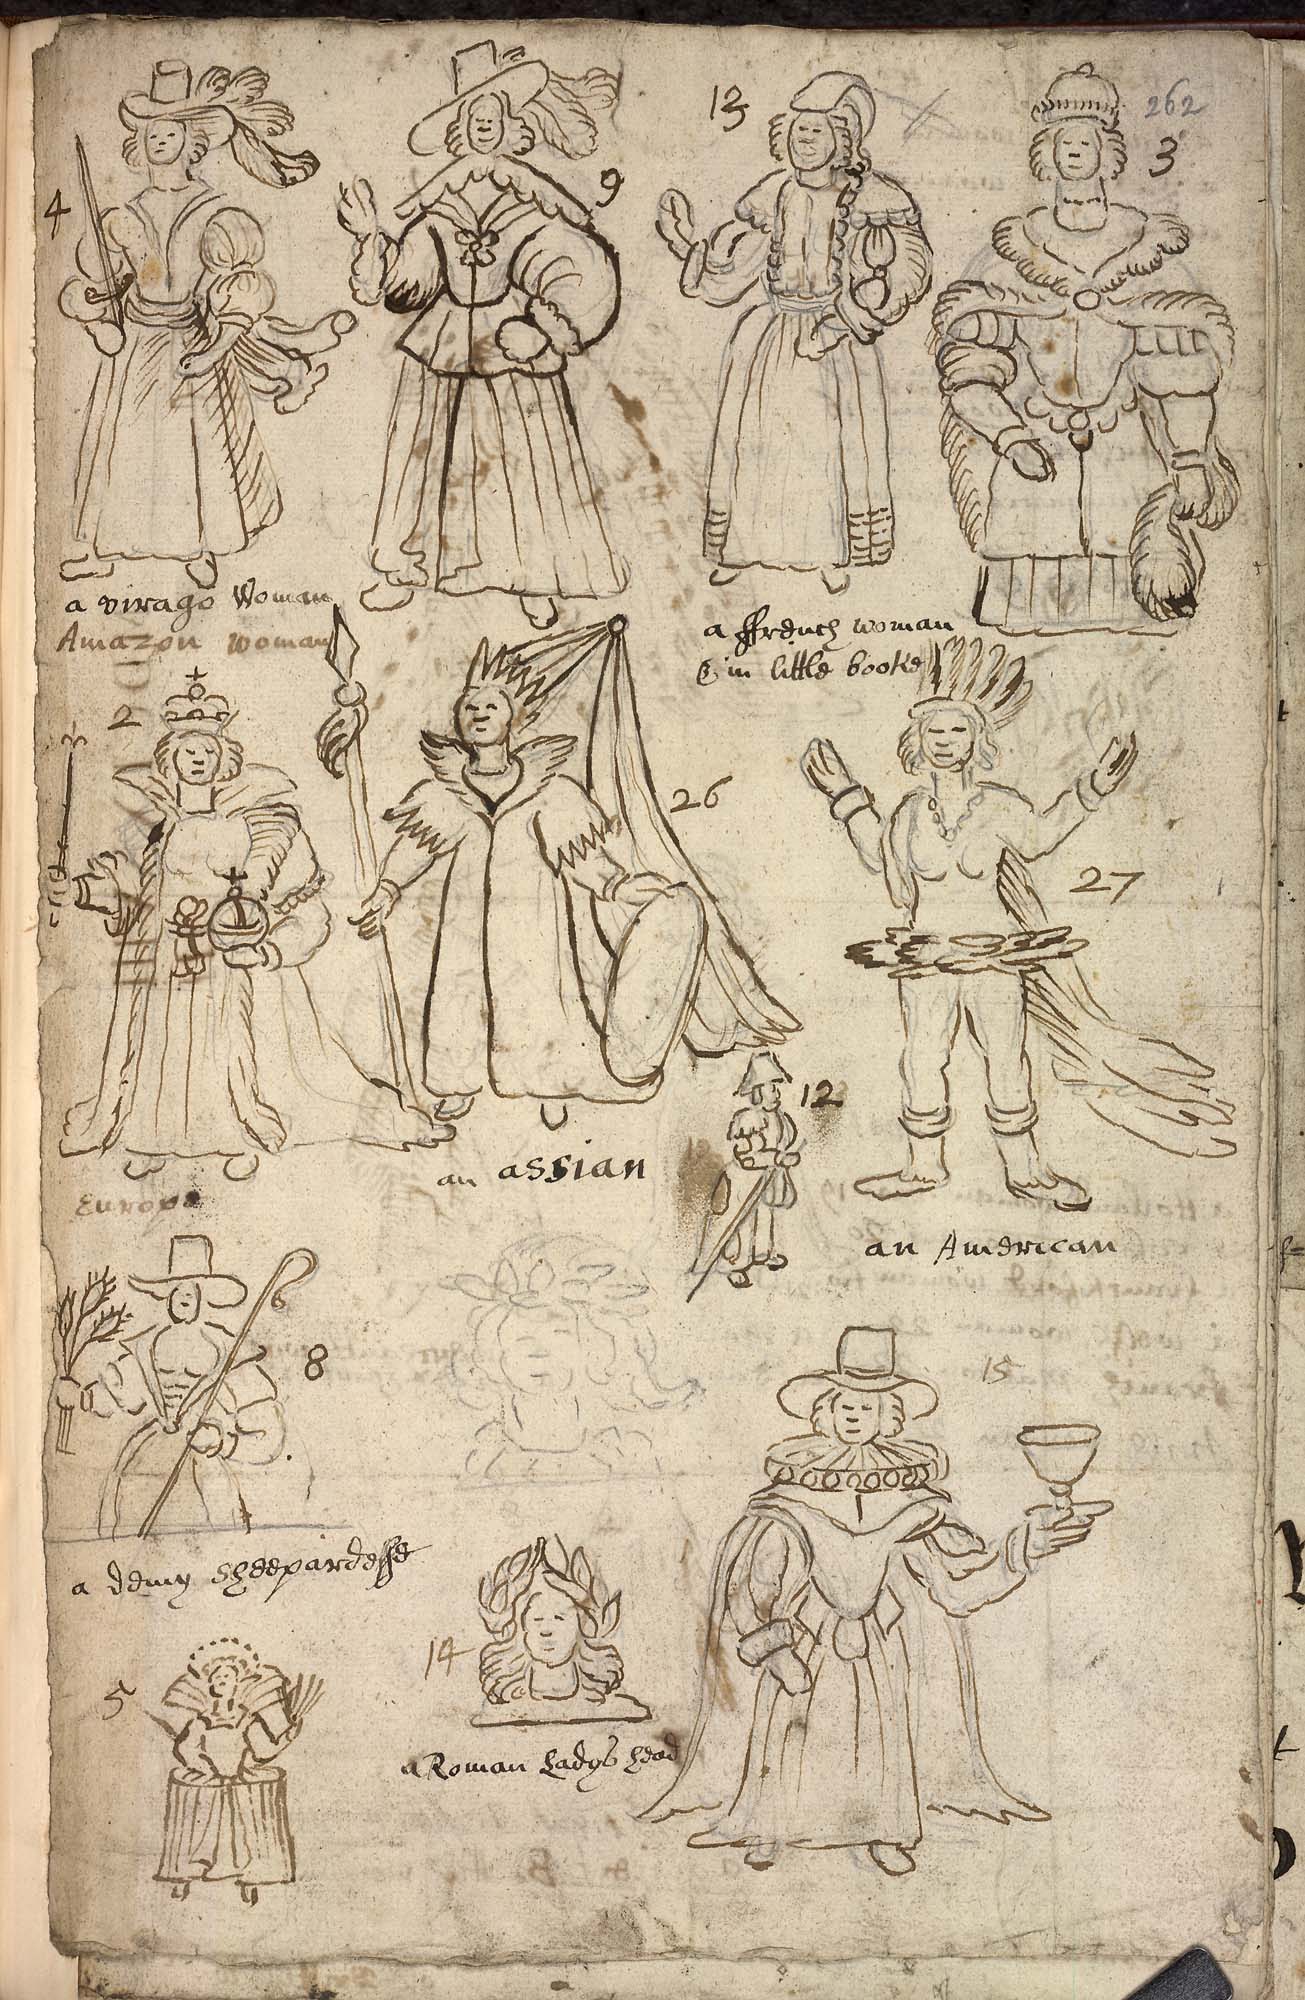 262
4
9
13
3
a virago Woman
Amazon woman
a ffrench woman
in little booke
2
26
27
12
Europe
an assian
an American
8
15
a demy sheepardesse
14
5
a Roman Ladys head